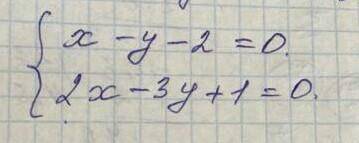 x - y - 2 = 0.
2x - 3y + 1 = 0.